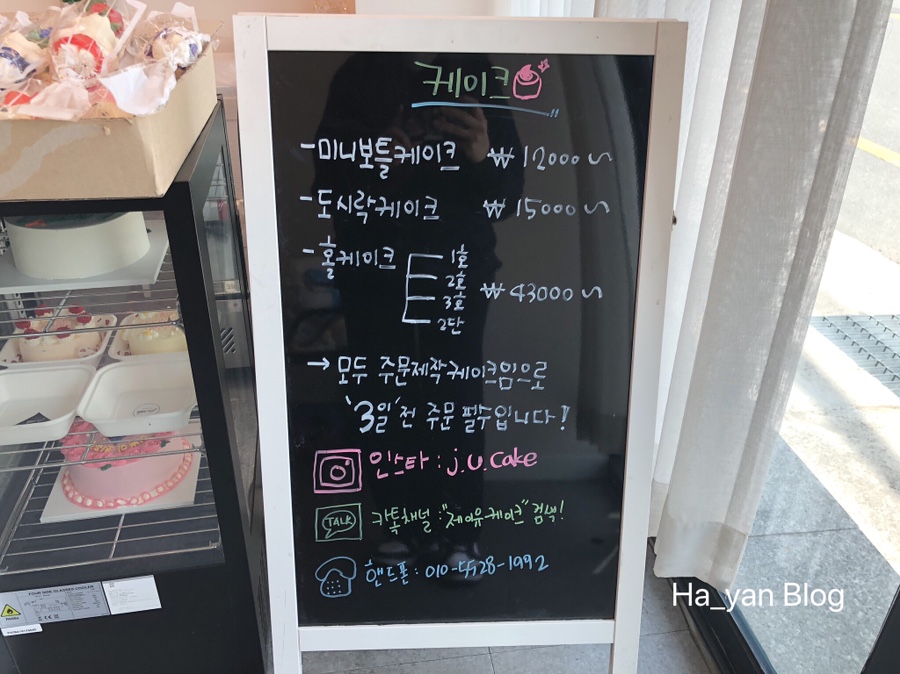 케이크
-미니보틀케이크 ₩12000~
-도시락케이크 ₩15000~
-홀케이크
1호
2호
3호
2단
₩43000~
→ 모두 주문제작케이크임으로
'3일'전 주문 필수입니다!
인스타 : j.u.cake
TALK
카톡채널 : "제이유케이크" 검색!
핸드폰 : 010-5528-1992
FOUR SIDE GLASSES COOLER
Ha_yan Blog